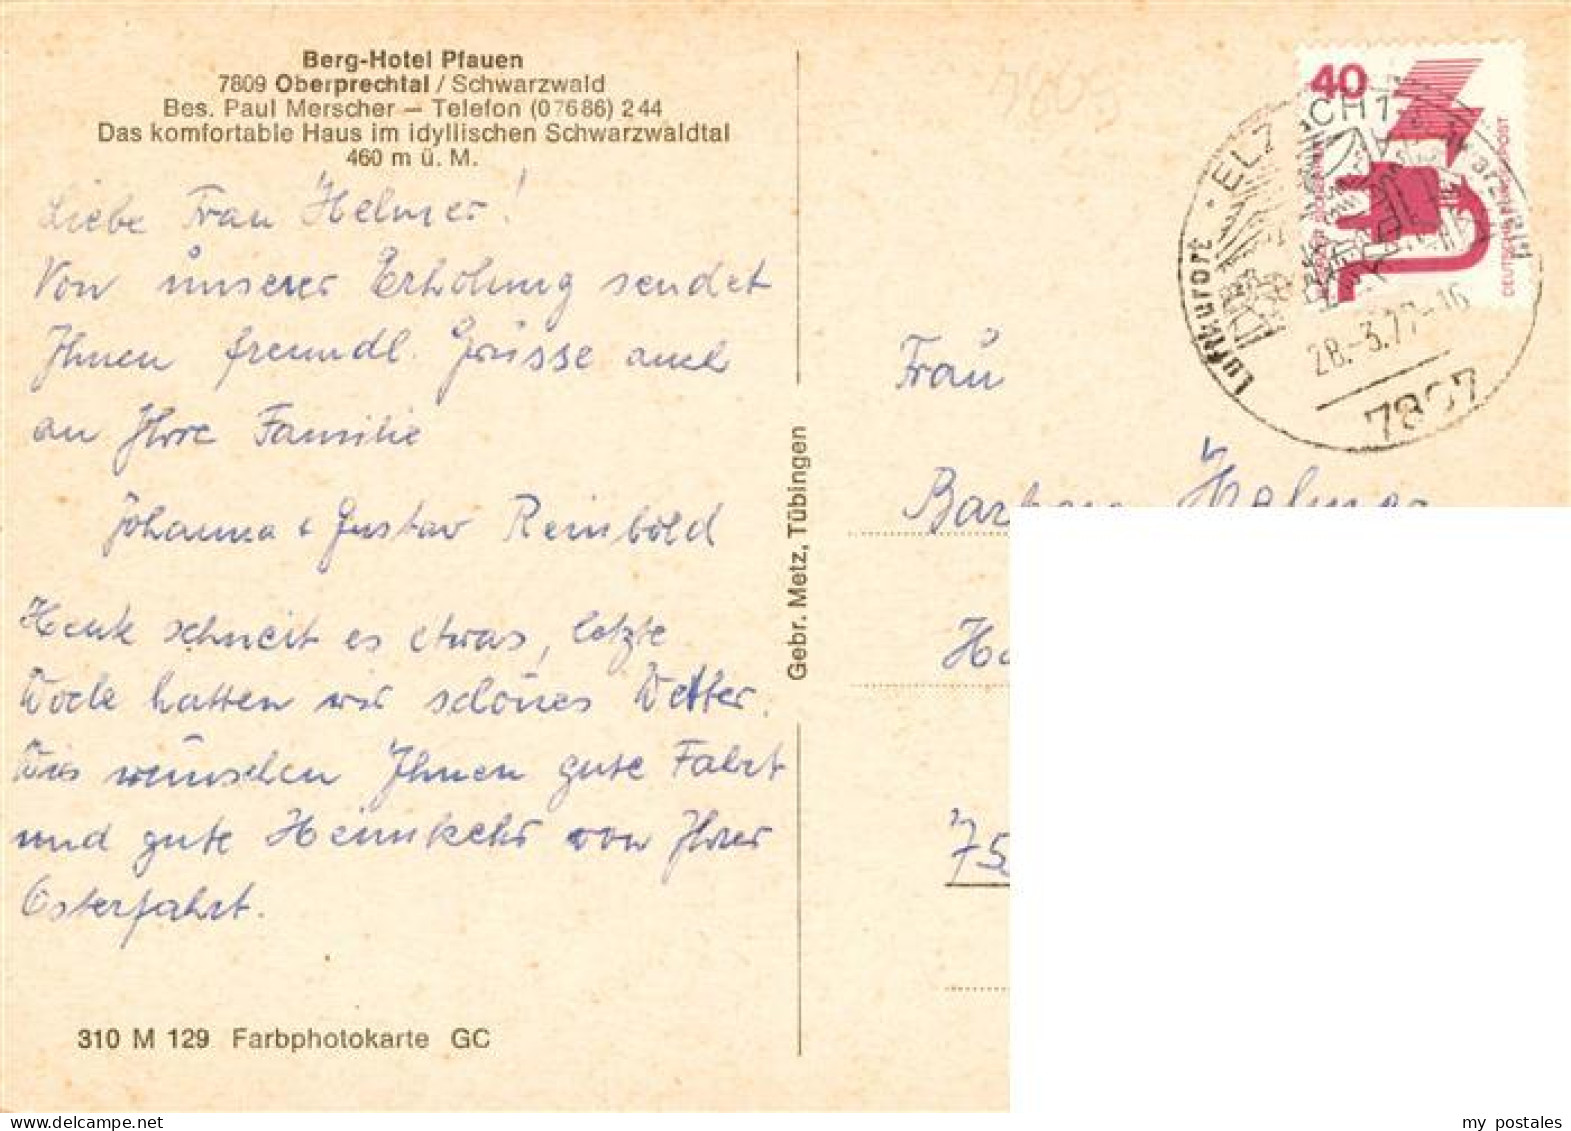 Berg-Hotel Pfauen
7809 Oberprechtal / Schwarzwald
Bes. Paul Merscher – Telefon (07686) 244
Das komfortable Haus im idyllischen Schwarzwaldtal
460 m ü. M.
Liebe Frau Helmer!
Von unserer Erholung sendet
Ihnen freundl. Grüsse auch
an Ihre Familie
Johanna + Gustav Reinbold
Heute schneit es etwas, letzte
Woche hatten wir schönes Wetter.
Wir wünschen Ihnen gute Fahrt
und gute Heimkehr von Ihrer
Osterfahrt.
310 M 129 Farbphotokarte GC
Gebr. Metz, Tübingen
7809
40
DEUTSCHE BUNDESPOST
Luftkurort · ELZACH 1
28.-3.77-16
7807
Frau
Barbara Helmer
75
my postales